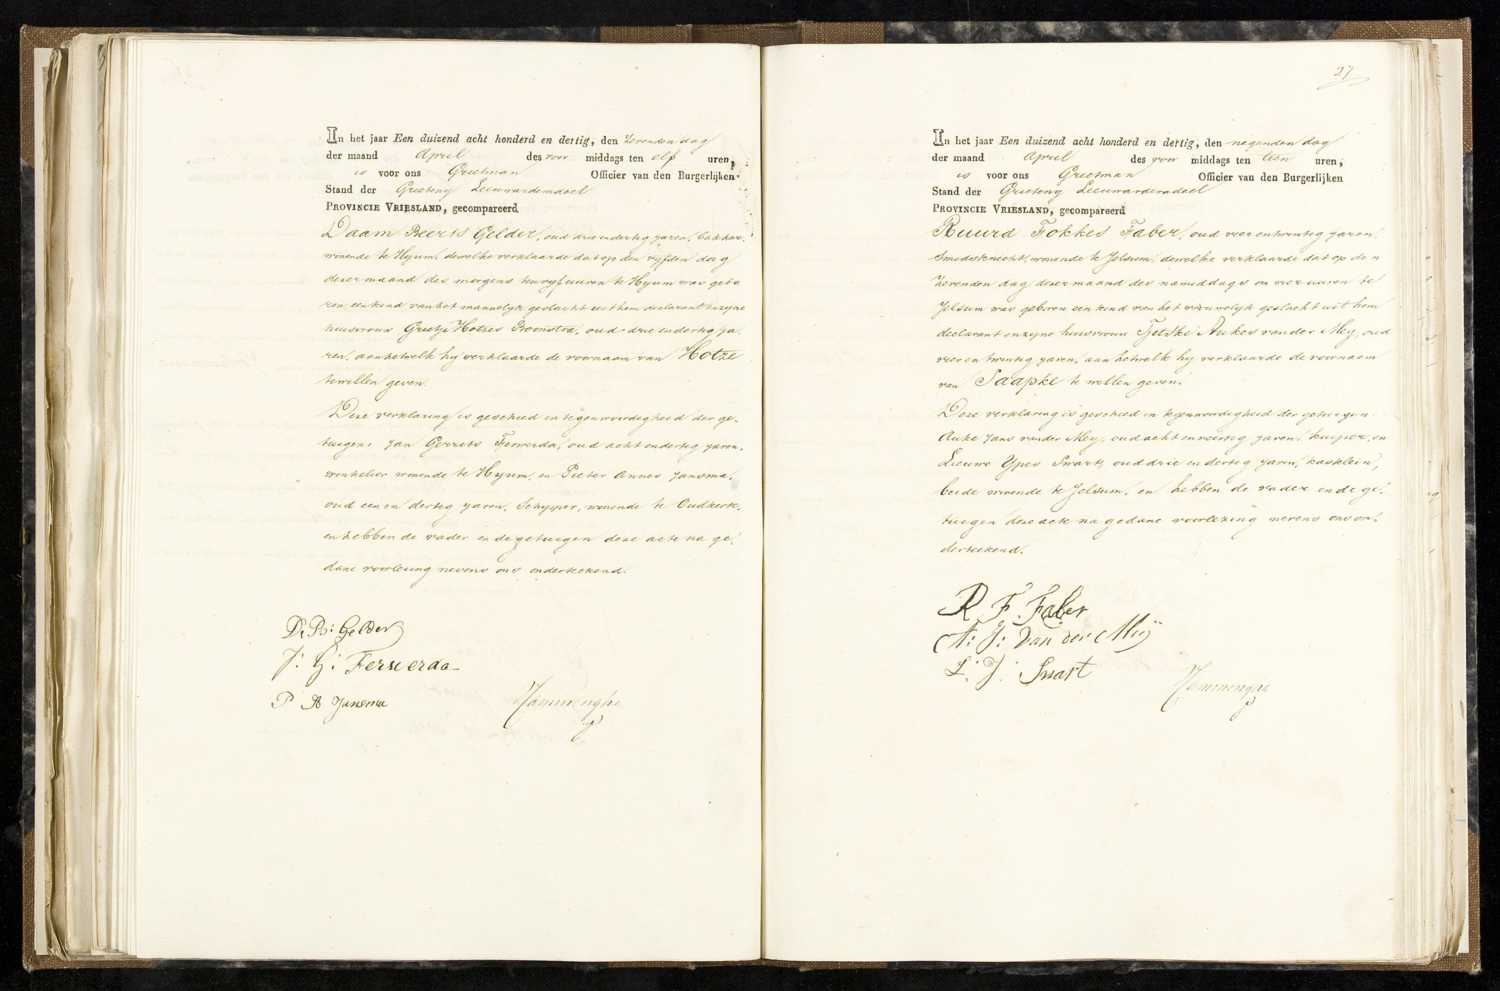 In het jaar Een duizend acht honderd en dertig, den zevenden dag
der maand April des voor middags ten elf uren,
is voor ons Grietman Officier van den Burgerlijken
Stand der Grieteny Leeuwarderadeel
PROVINCIE VRIESLAND, gecompareerd
Daam Reerts Gelder, oud drie en dertig jaren, bakker,
wonende te Hijum, dewelke verklaarde dat op den vyfden dag
dezer maand des morgens ten vyf uuren te Hijum was gebo
ren een kind van het mannelyk geslacht uit hem declarant en zyne
huisvrouw Grietje Hotzes Boonstra, oud drie en dertig ja
ren, aan hetwelk hy verklaarde de voornaam van Hotze
te willen geven.
Deze verklaring is geschied in tegenwoordigheid der ge-
tuigen Jan Gerrits Ferwerda, oud acht en dertig jaren,
winkelier wonende te Hijum, en Pieter Annes Jansma,
oud een en dertig jaren, Schipper, wonende te Oudkerk,
en hebben de vader en de getuigen deze acte na ge-
dane voorlezing nevens ons onderteekend.
D. R: Gelder
J: G: Ferwerda
P A Jansma
27
In het jaar Een duizend acht honderd en dertig, den negenden dag
der maand April des voor middags ten tien uren,
is voor ons Grietman Officier van den Burgerlijken
Stand der Grieteny Leeuwarderadeel
PROVINCIE VRIESLAND, gecompareerd
Ruurd Fokkes Faber, oud vier en twintig jaren,
Smedsknecht, wonende te Jelsum, dewelke verklaarde dat op den
zevenden dag dezer maand des namiddags om vier uuren te
Jelsum was geboren een kind van het vrouwelyk geslacht uit hem
declarant en zyne huisvrouw Tjitske Aukes van der Mey, oud
vier en twintig jaren, aan hetwelk hy verklaarde de voornaam
van Jaapke te willen geven.
Deze verklaring is geschied in tegenwoordigheid der getuigen
Auke Jans van der Mey, oud acht en veertig jaren, kuiper, en
Lieuwe Ypes Swart, oud drie en dertig jaren, kastelein,
beide wonende te Jelsum, en hebben de vader en de ge-
tuigen deze acte na gedane voorlezing nevens ons on-
derteekend.
R F. Faber
A: J: Van der Meij
L. J. Swart